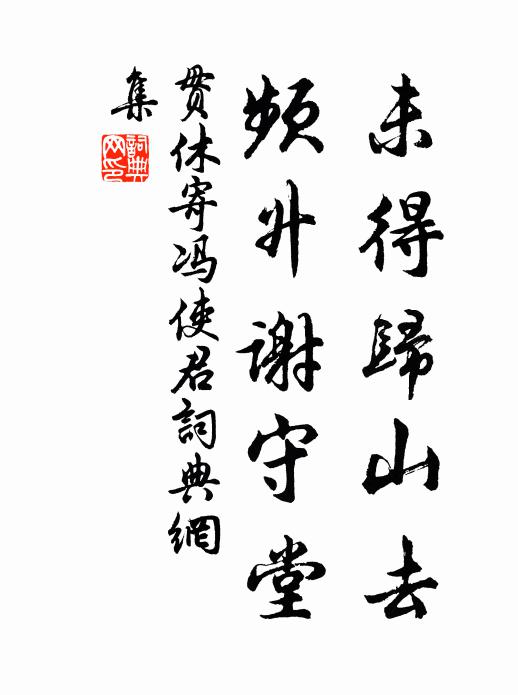 未得歸山去
頻升謝守堂
貫休寄冯使君詞典網
集
詞典
网印